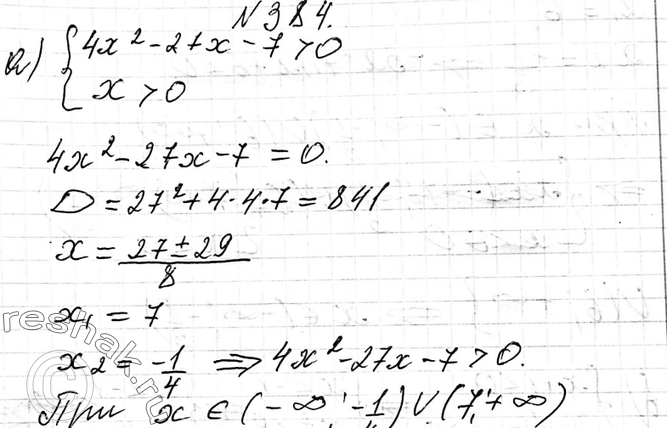 N 384.
а) { 4x² - 27x - 7 > 0
x > 0
4x² - 27x - 7 = 0.
D = 27² + 4·4·7 = 841
x = (27 ± 29)/8
x₁ = 7
x₂ = -1/4 ⇒ 4x² - 27x - 7 > 0.
При x ∈ (-∞; -1/4) ∪ (7; +∞)
reshak.ru